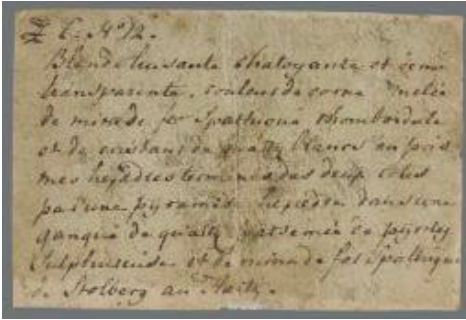 Z. C. N° 12.
Blende luisante chatoyante et demi
transparente, couleur de corne melée
de mine de fer Spathique rhomboidale
et de cristaux de quartz blancs en pris
mes hexedres terminés des deux cotés
par une pyramide hexedre dans une
gangue de quartz parsemée de pyrites
sulphureuse et de mine de fer Spathique
de Stolberg au Hartz.